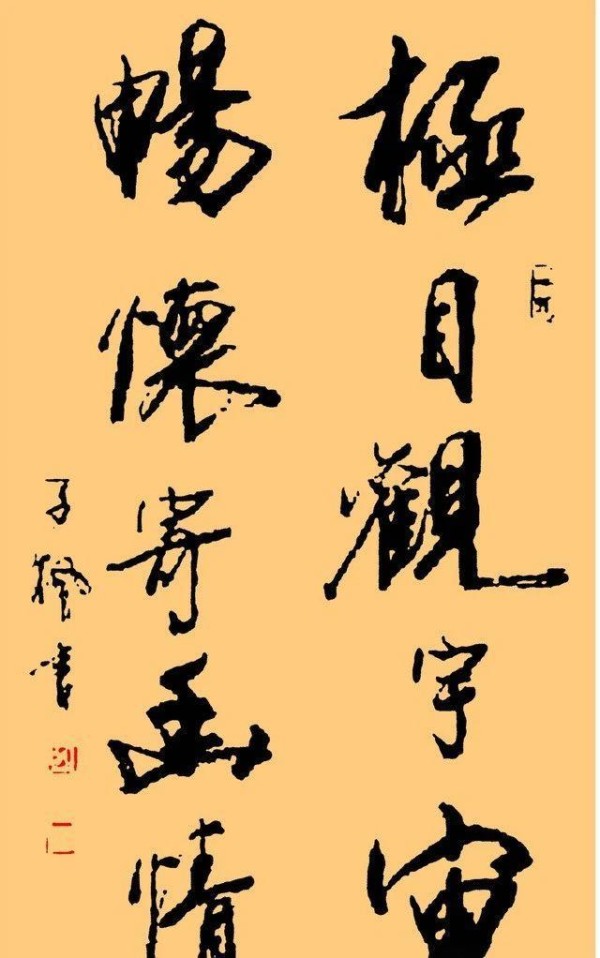 極目觀宇宙
暢懷寄幽情
子 書